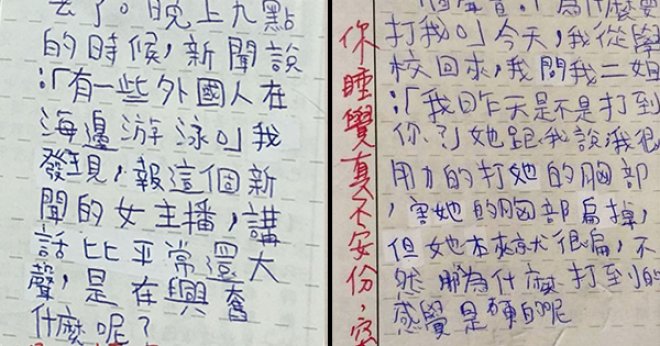 去了。晚上九點
的時候，新聞說
：「有一些外國人在
海邊游泳。」我
發現，報這個新
聞的女主播，講
話比平常還大
聲，是在興奮
什麼呢？
你睡覺真不安份，
個聲音。「為什麼要
打我。」今天，我從學
校回來，我問我二姐
：「我昨天是不是打到
你？」她跟我說我很
用力的打她的胸部
，害她的胸部扁掉，
但她本來就很扁，不
然那為什麼打到的
感覺是硬的呢